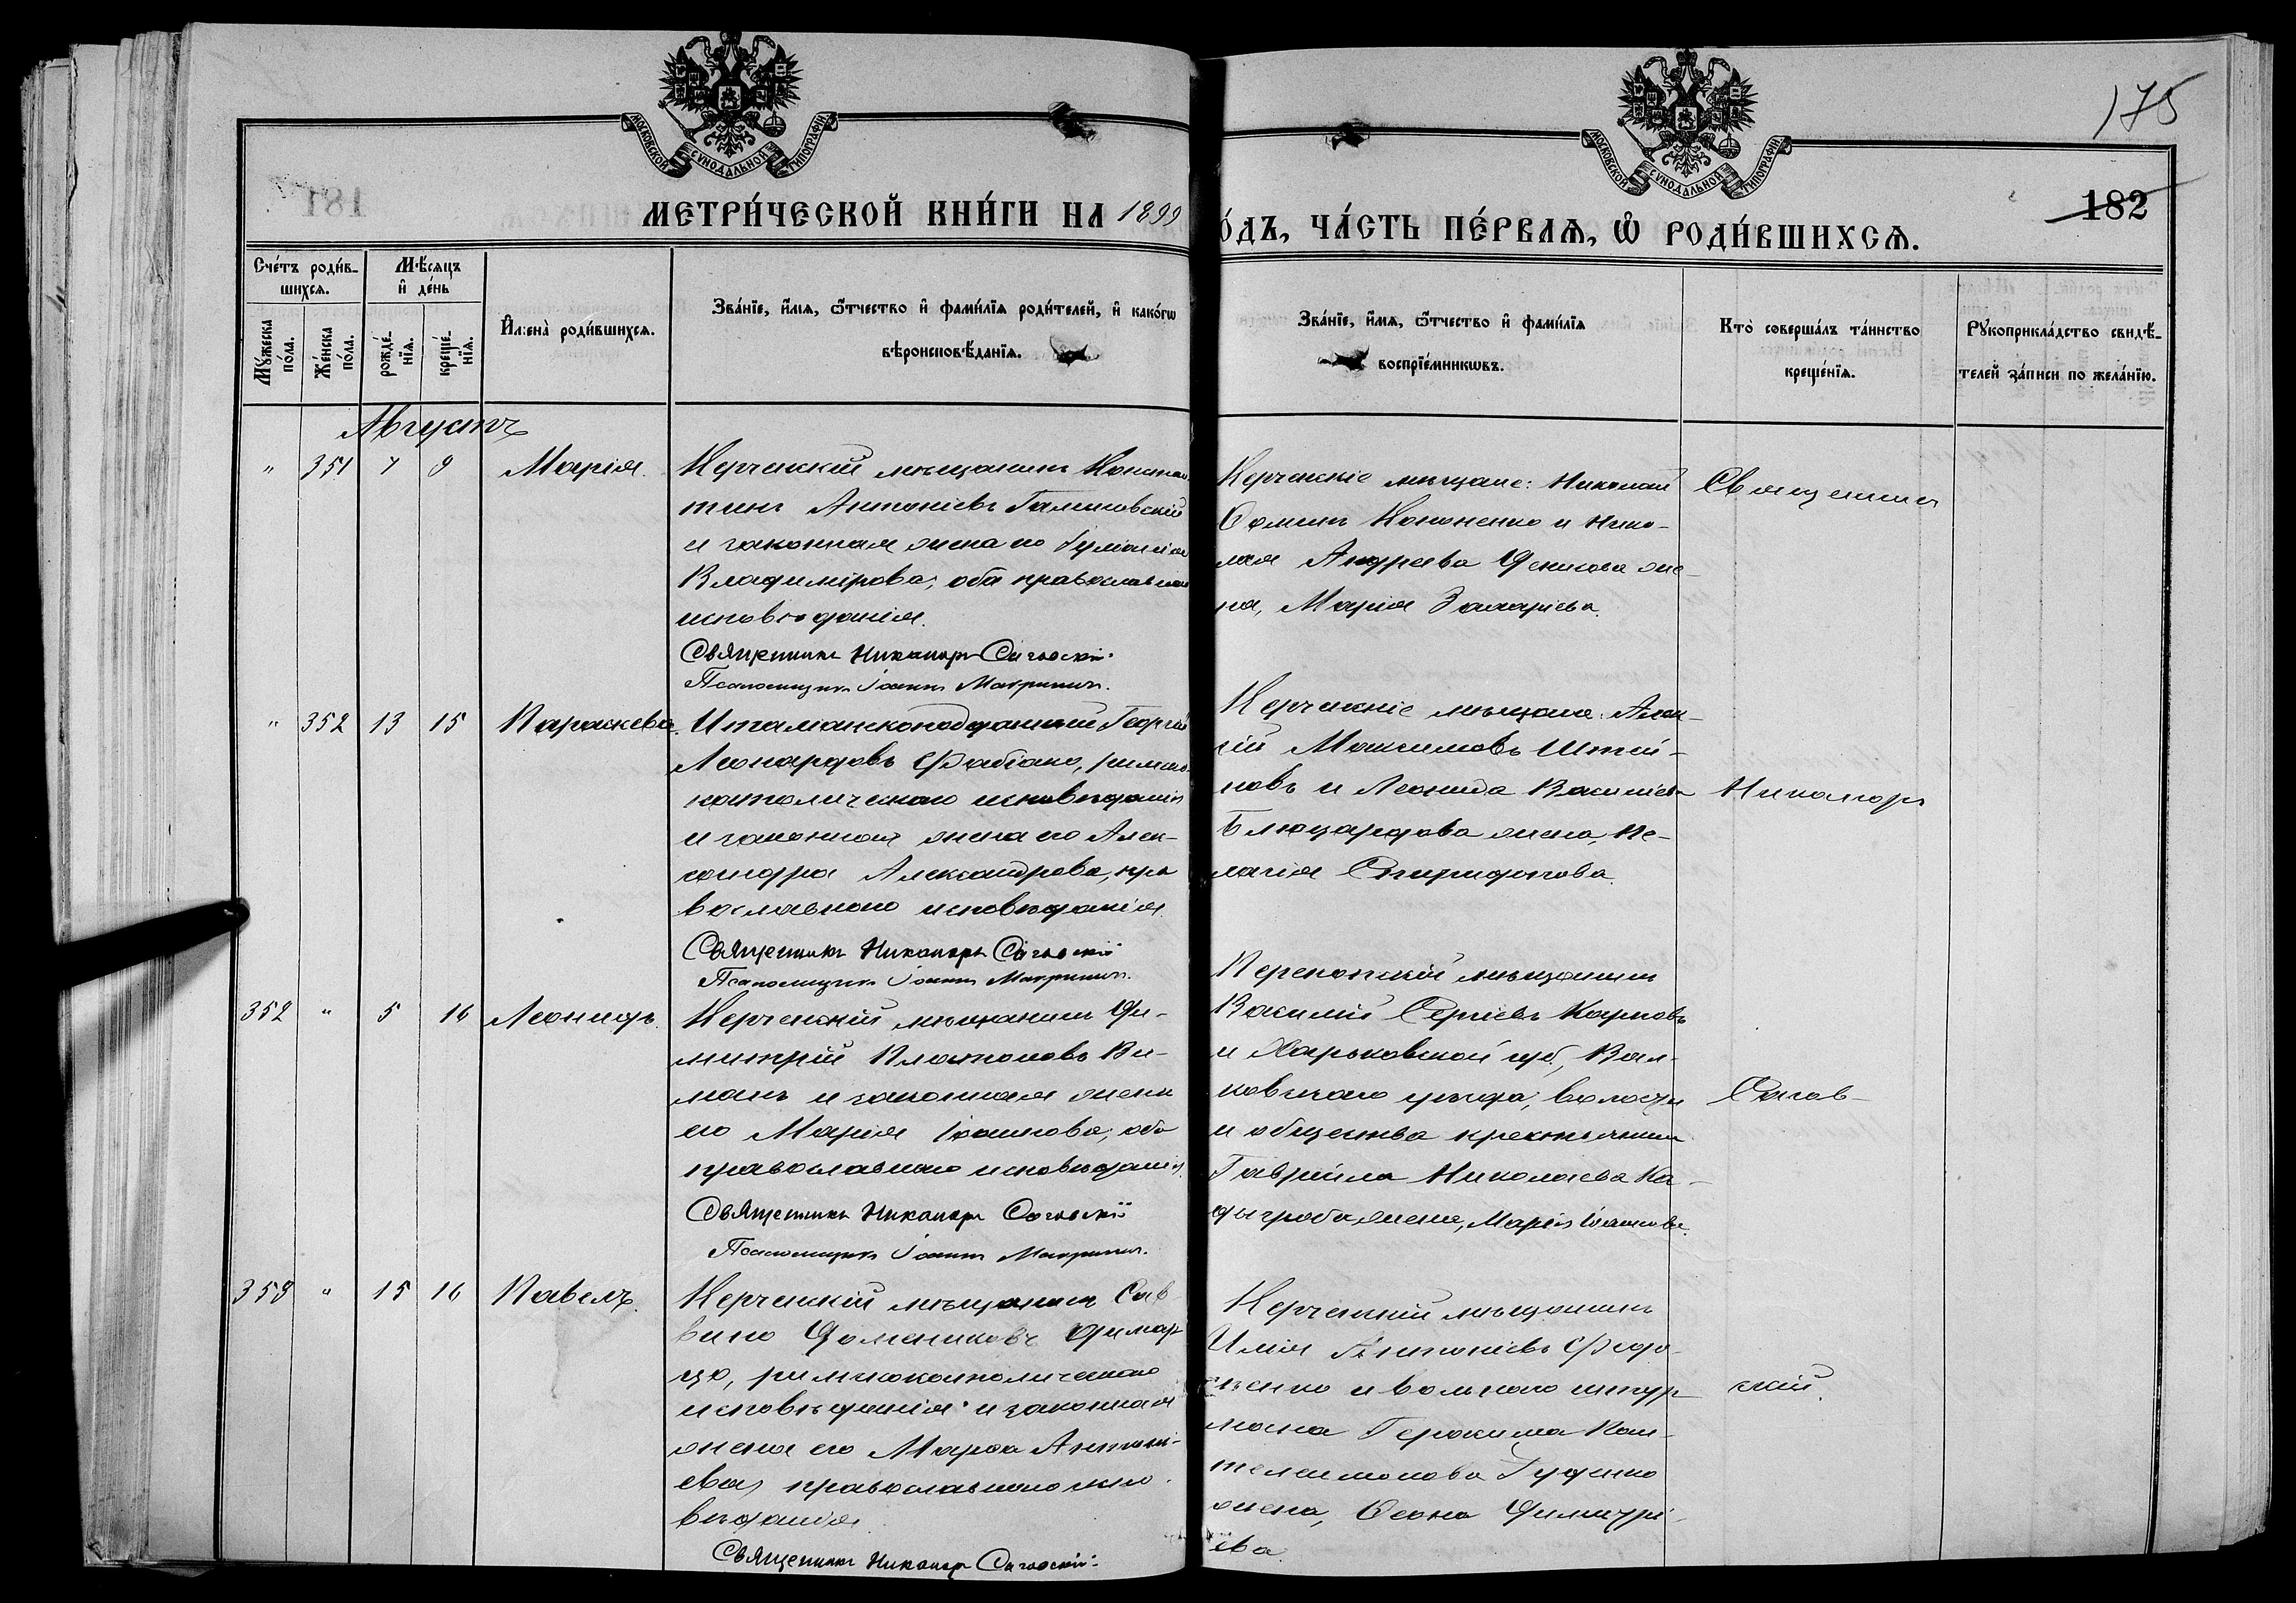 175
182
МОСКОВСКОЙ СѴНОДАЛЬНОЙ ТИПОГРАФІИ
МОСКОВСКОЙ СѴНОДАЛЬНОЙ ТИПОГРАФІИ
МЕТРИ́ЧЕСКОЙ КНИ́ГИ НА 1899
О́ДЪ, ЧА́СТЬ ПЕ́РВАѦ, Ѡ҆ РОДИ́ВШИХСѦ.
Сче́тъ роди́в-
шихсѧ.
Мѣ́сяцъ
и҆ де́нь
Мꙋ́жеска
по́ла.
Же́нска
по́ла.
рожде́-
нїѧ.
креще́-
нїѧ.
И҆мена̀ роди́вшихсѧ.
Зва́нїе, и҆́мѧ, ѻ҆́тчество и҆ фами́лїѧ роди́телей, и҆ како́гѡ
вѣроисповѣ́данїѧ.
Зва́нїе, и҆́мѧ, ѻ҆́тчество и҆ фами́лїѧ
воспрїе́мникѡвъ.
Кто̀ соверша́лъ та́инство
креще́нїѧ.
Рꙋкоприкла́дство свидѣ́-
телей за́писи по жела́нїю.
Августъ
" 351 7 9 Марія.
Керченскій мѣщанинъ Констан
тинъ Антоніевъ Галиковскій
и законная жена его
Владимірова, оба православнаго
исповѣданія.
Священникъ Никаноръ
Псаломщикъ Іоаннъ
Керченскіе мѣщане: Николай
Ѳоминъ Кононенко и Нико-
лая Андреева Денисова же-
на, Марія Захаріева.
" 352 13 15 Параскева.
Италіанскоподданный Георгій
Леонардовъ Фабіано, римско-
католическаго исповѣданія
и законная жена его Алек-
сандра Александрова, пра
вославнаго исповѣданія.
Священникъ Никаноръ
Псаломщикъ Іоаннъ
Керченскіе мѣщане: Алек-
сій Максимовъ Штей-
новъ и Леонида Васильева
жена, Пе-
лагія Спиридонова.
352 " 5 16 Леонидъ.
Керченскій мѣщанинъ Ди-
митрій Платоновъ Ви-
манъ и законная жена
его Марія Іоаннова, оба
православнаго исповѣданія.
Священникъ Никаноръ
Псаломщикъ Іоаннъ
Перекопскій мѣщанинъ
Василій Сергіевъ Карповъ
и Харьковской губ., Вал-
ковскаго уѣзда, волости
и общества крестьянина
Гавріила Николаева Ка-
дыгроба жена, Марія Іоаннова.
353 " 15 16 Павелъ.
Керченскій мѣщанинъ Сав
вино Домениковъ Димар
цо, римскокатолическаго
исповѣданія и законная
жена его Марѳа Антоні-
ева, православнаго испо-
вѣданія.
Священникъ Никаноръ
Керченскій мѣщанинъ
Илія Антоніевъ Федо-
сѣенко и вольнаго штур-
мана Герасима Пан-
телеимонова Гуденко
жена, Ѳеона Димитрі-
ева.
Священникъ
Никаноръ
скій.